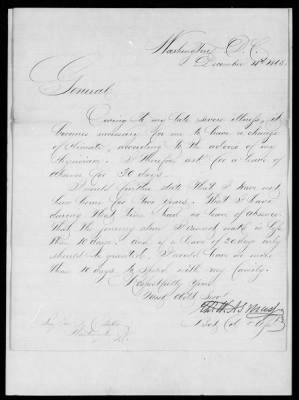 Washington D.C.
December 14th 186
General
Owing to my late severe illness, it
becomes necessary for me to have a change
of climate, according to the advice of my
physician. I therefore ask for a leave of
absence for 30 days.
I would further state that I have not
been home for two years. That I have
during that time had no leave of absence.
That the journey alone
than 10 days, and if a leave of 20 days only
should be granted, I would have no more
than 10 days to spend with my family.
Respectfully Your
Most Obdt Servt